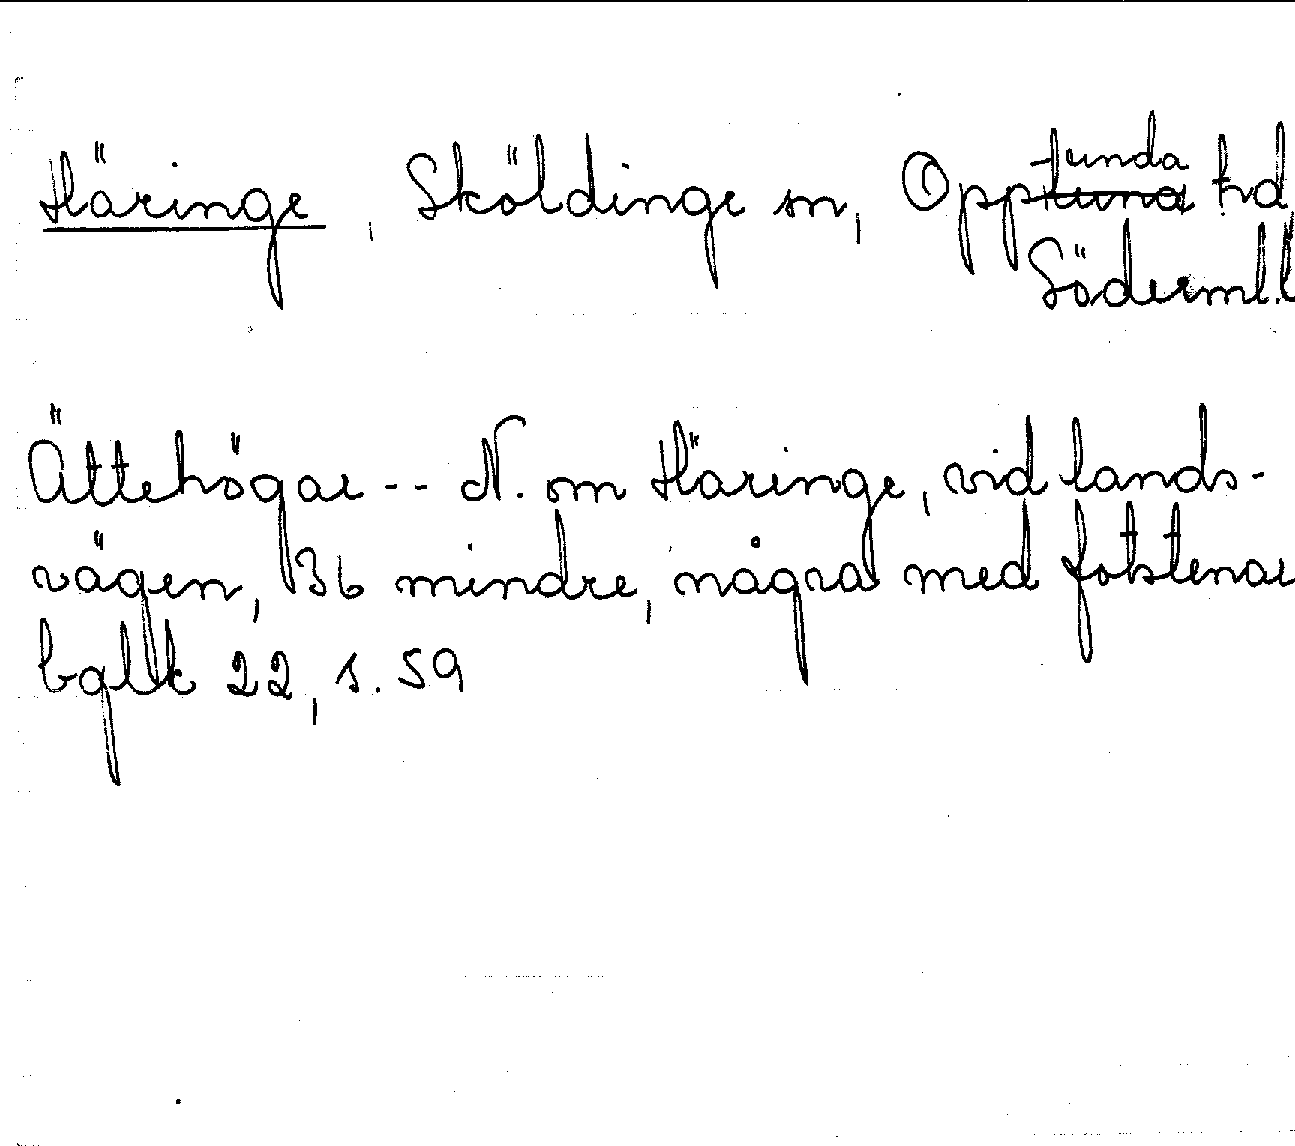 Häringe, Sköldinge sn, Opptuna hd
-funda
Söderml.l
Ättehögar -- N. om Häringe, vid lands-
vägen, 36 mindre, några med fotstenar
bglk 22, s. 59